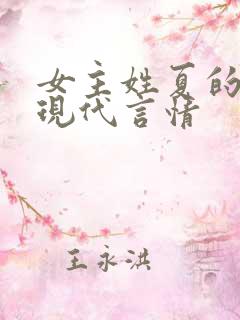 女主姓夏的
現代言情
王永洪